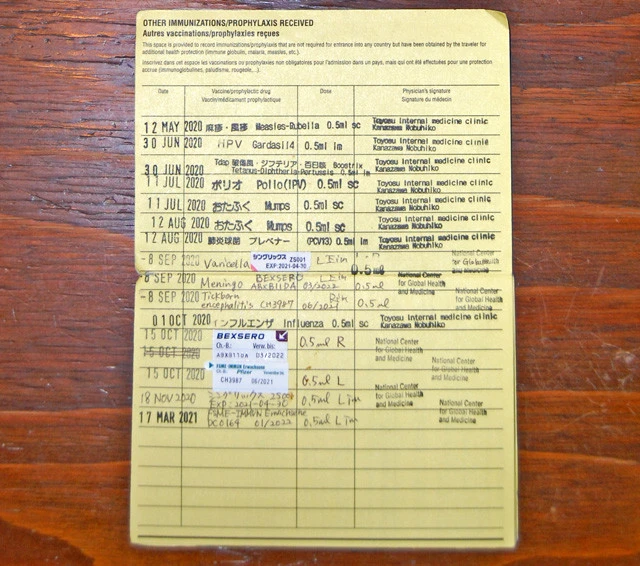 OTHER IMMUNIZATIONS/PROPHYLAXIS RECEIVED
Autres vaccinations/prophylaxies reçues
This space is provided to record immunizations/prophylaxis that are not required for entrance into any country but have been obtained by the traveler for
additional health protection (immune globulin, malaria, measles, etc.).
Inscrivez dans cet espace les vaccinations ou prophylaxies non obligatoires pour l'admission dans un pays, mais qui ont été effectuées pour une protection
accrue (immunoglobulines, paludisme, rougeole,...).
Date Vaccine/prophylactic drug Dose Physician's signature
Vaccin/médicament prophylactique Signature du médecin
12 MAY 2020 麻疹・風疹 Measles-Rubella 0.5ml sc Toyosu internal medicine clinic
Kanazawa Nobuhiko
30 JUN 2020 HPV Gardasil4 0.5ml im Toyosu internal medicine clinic
Kanazawa Nobuhiko
30 JUN 2020 Tdap 破傷風・ジフテリア・百日咳 Boostrix Toyosu internal medicine clinic
Tetanus-Diphtheria-Pertussis 0.5ml im Kanazawa Nobuhiko
11 JUL 2020 ポリオ Polio(IPV) 0.5ml sc Toyosu internal medicine clinic
Kanazawa Nobuhiko
11 JUL 2020 おたふく Mumps 0.5ml sc Toyosu internal medicine clinic
Kanazawa Nobuhiko
12 AUG 2020 おたふく Mumps 0.5ml sc Toyosu internal medicine clinic
Kanazawa Nobuhiko
12 AUG 2020 肺炎球菌 プレベナー (PCV13) 0.5ml im Toyosu internal medicine clinic
Kanazawa Nobuhiko
-8 SEP 2020 Varicella シングリックス Z5001 EXP.2021-04-30 L im 0.5ml National Center
for Global Health
and Medicine
8 SEP 2020 Meningo BEXSERO ABXB11DA 03/2022 L im 0.5ml National Center
for Global Health
and Medicine
-8 SEP 2020 Tickborn encephalitis CH3987 06/2021 Rim 0.5ml National Center
for Global Health
and Medicine
01 OCT 2020 インフルエンザ Influenza 0.5ml sc Toyosu internal medicine clinic
Kanazawa Nobuhiko
15 OCT 2020 BEXSERO 0.5ml R National Center
Ch.-B.: Verw. bis: for Global Health
03/2022 and Medicine
15 OCT 2020
15 OCT 2020 FSME-IMMUN Erwachsene Pfizer National Center
CH3987 06/2021 0.5ml L for Global Health
and Medicine
18 NOV 2020 シングリックス EXP: 2021-04-30 0.5ml L im National Center
for Global Health
and Medicine
17 MAR 2021 FSME-IMMUN Erwachsene 0.5ml L im National Center
01/2022 for Global Health
and Medicine